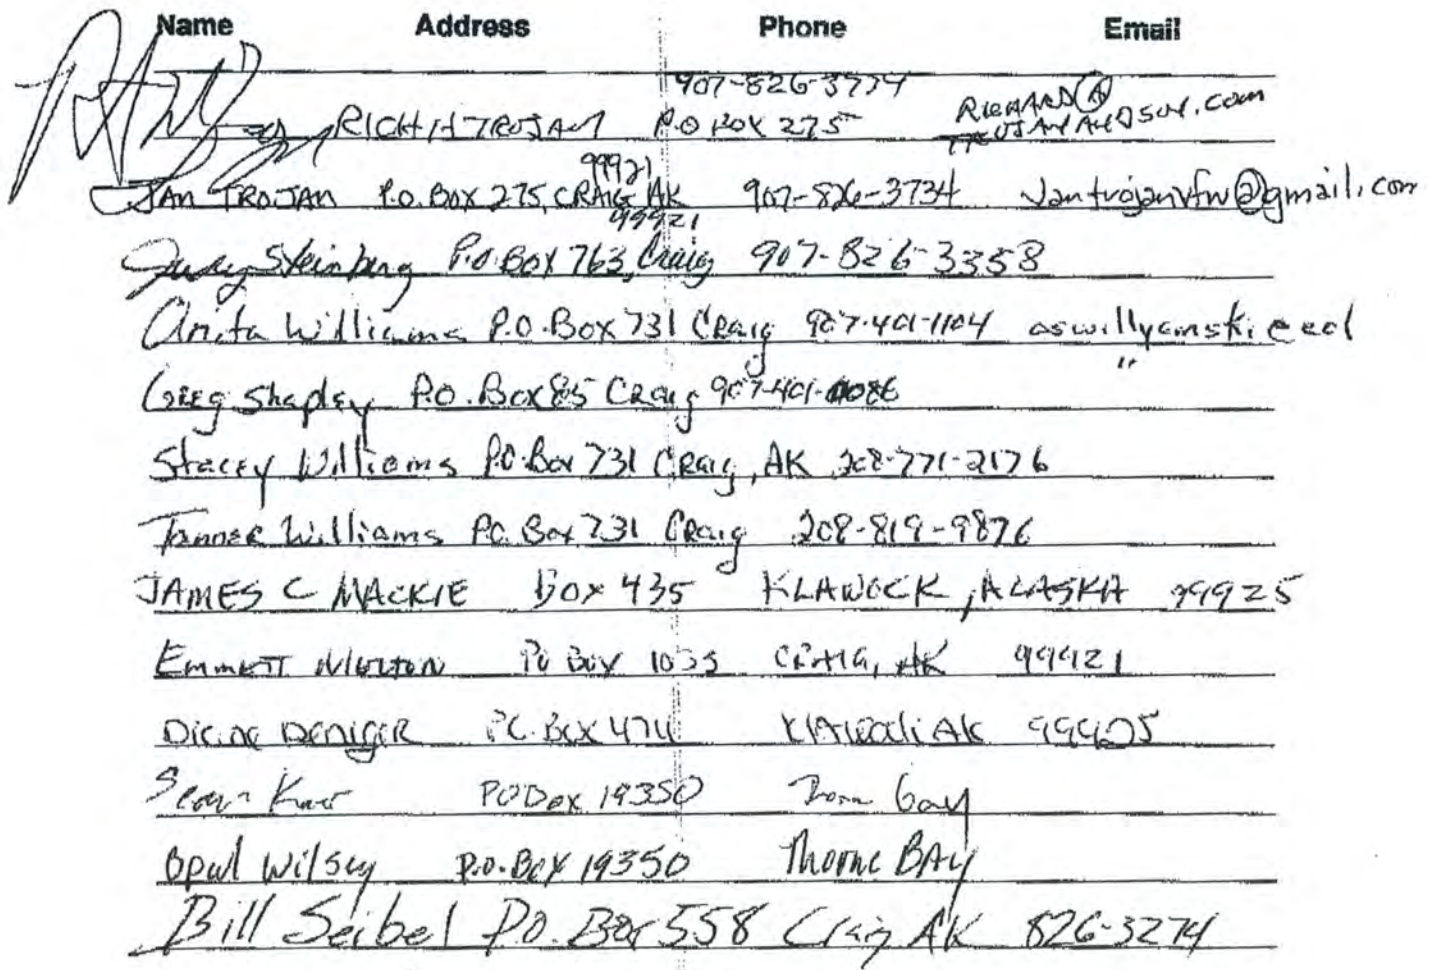 Name Address Phone Email
907-826-3774
RICH H TROJAN P.O BOX 275 RICHARD@
99921
JAN TROJAN P.O. BOX 275, CRAIG AK 907-826-3734 Jantrojanvfw@gmail.com
99921
Judy Steinberg P.O. BOX 763, Craig 907-826-3358
Anita Williams P.O. Box 731 Craig 907-401-1104
"
Greg Shapley P.O. Box 85 Craig 907-401-
Stacey Williams P.O. Box 731 Craig, AK 208-771-2176
Tanner Williams P.O. Box 731 Craig 208-819-9876
JAMES C MACKIE Box 435 KLAWOCK, ALASKA 99925
Emmett PO Box CRAIG, AK 99921
Diane Deniger P.O. Box 474 Klawock AK 99925
Sean PO Box 19350 Thorne Bay
Opal Wilsey P.O. Box 19350 Thorne BAy
Bill Seibel P.O. Box 558 Craig AK 826-3274